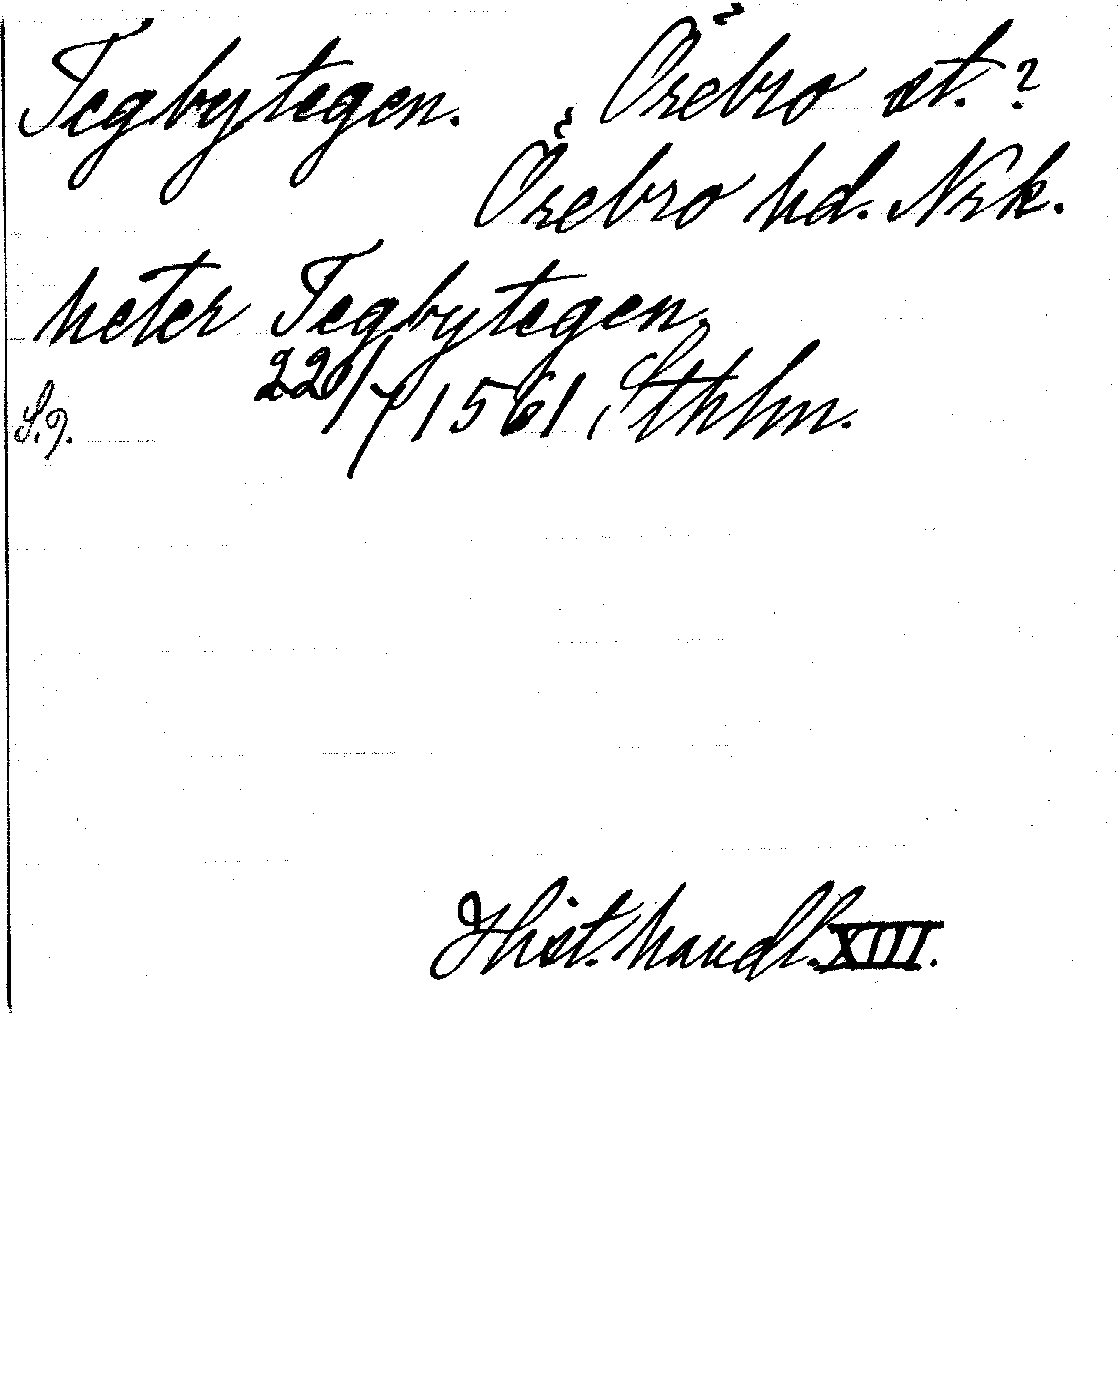 Tegbytegen. Örebro st.?
Örebro hd. Nrk.
heter Tegbytegen,
22/7 1561, Sthlm.
S. 9.
Hist. handl. XIII.